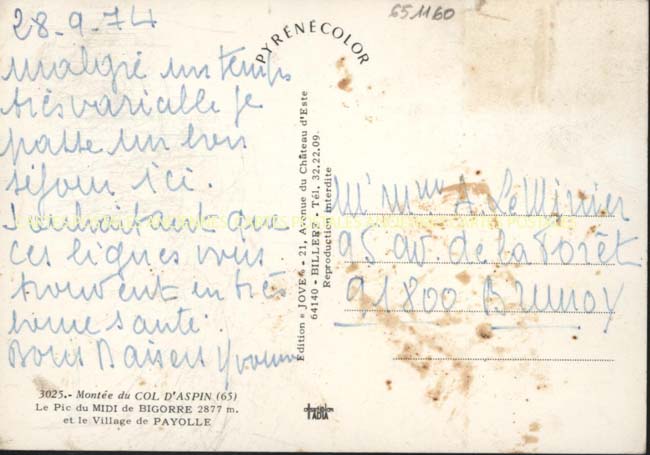 28-9-74
Malgré un temps
très variable je
passe un bon
séjour ici.
Souhaitant que
ces lignes vous
trouvent en très
bonne santé.
Bons Baisers Yvonne
3025.- Montée du COL D'ASPIN (65)
Le Pic du MIDI de BIGORRE 2877 m.
et le Village de PAYOLLE
651160
PYRÉNÉCOLOR
Edition « JOVE » - 21, Avenue du Château d'Este
64140 - BILLERE - Tél. 32.22.09
Reproduction interdite
M. Mme A. Le Minier
95 av. de la Forêt
91800 Brunoy